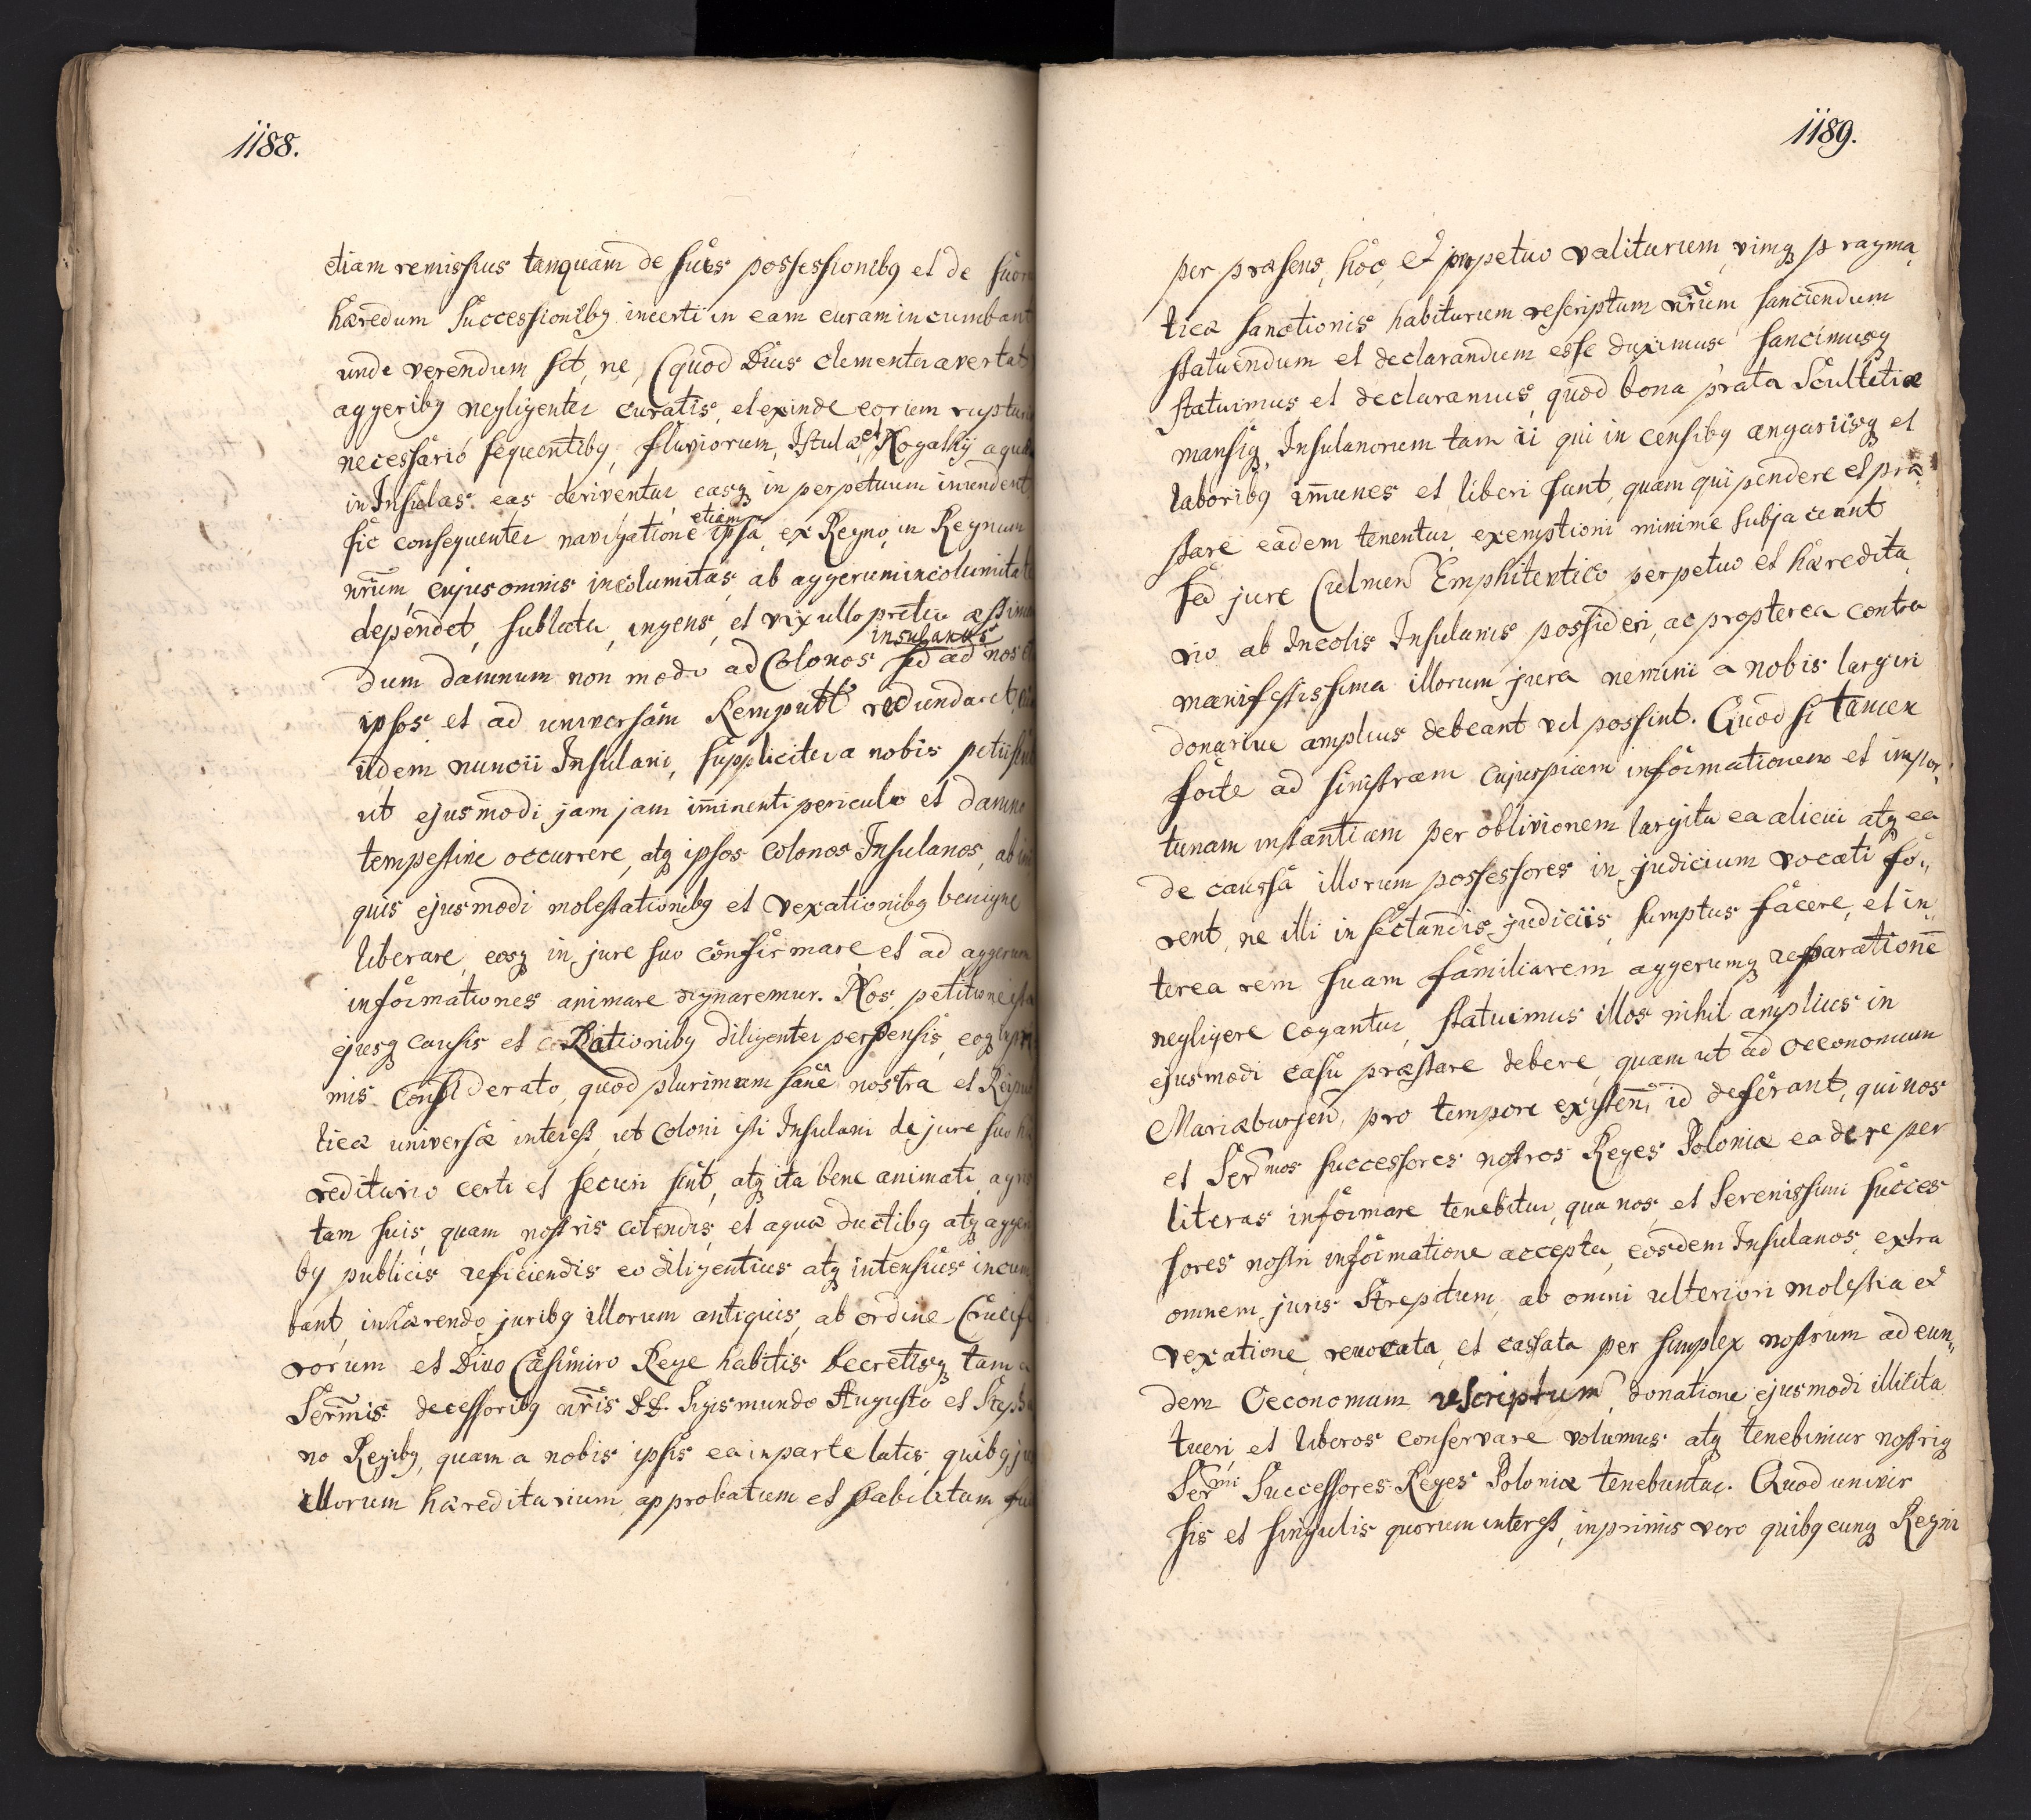 1188.
etiam remissius tanquam de suis possessionibq et de suor
hæredum Successionibq incerti in eam curam incumbant
unde verendum sit, ne, (quod Dius clementer avertat
aggeribq negligenter curatis, et exinde eorum ruptur
necessario sequentibq, fluviorum, Istulæ et Nogathij aquæ
in Insulas eas deriventur easq in perpetuum inundent,
sic consequenter navigatione etiam ipsa, ex Regno in Regnum
nrũm, cujus omnis incolumitas, ab aggerum incolumitate
dependet, sublata, ingens, et vix ullo pretio æstiman
dum damnum non modo ad Colonos insulanos sed ad nos et
ipsos et ad universam Rempubl redundaret,
iidem nuncii Insulani, suppliciter a nobis petiisent
ut ejusmodi jam jam im̃inenti periculo et damno
tempestive occurrere, atq ipsos colonos Insulanos, ab ini
quis ejusmodi molestationibq et vexationibq benigne
liberare, eosq in jure suo confirmare, et ad aggerum
informationes animare dignaremur. Nos, petitione ista
ejusq causis et Rationibq diligenter perpensis, eoq inpri
mis considerato, quod plurimum sane nostra et Reipub
licæ universæ interest, ut Coloni isti Insulani de jure suo hæ
reditario certi et securi sint, atq ita bene animati, agris
tam suis, quam nostris colendis, et aquæ ductibq atq aggeri
bq publicis reficiendis eo diligentius atq intensius incum
bant, inhærendo juribq illorum antiquis, ab ordine Crucife
rorum et Divo Casimiro Rege habitis Decretisq tam a
Serm̃is decessoribq nr̃is DD. Sigismundo Augusto et Stepha
no Regibq, quam a nobis ipsis ea in parte latis, quibq jus
illorum hæreditarium, approbatum et stabilitum
1189.
per præsens, hoc, et perpetuo valiturum, vimq pragma
ticæ sanctionis habiturum rescriptum nrũm sanciendum
statuendum et declarandum esse duximus sancimusq
statuimus et declaramus, quod bona prata Scultetiæ
mansiq, Insulanorum tam ii qui in censibq angariisq et
laboribq im̃unes et liberi sunt, quam qui pendere et præ
stare eadem tenentur, exemptioni minime subjaceant
sed jure Culmen Emphitevtico perpetuo et hæredita
rio ab Incolis Insulanis possideri, ac propterea contra
manifestissima illorum jura nemini a nobis largiri
donarive amplius debeant vel possint. Quod si tamen
forte ad sinistram cujuspiam informationem et impor
tunam instantiam per oblivionem largita ea alicui atq ea
de caussa illorum possessores in judicium vocati fo,,
rent, ne illi in sectandis judiciis, sumptus facere, et in
terea rem suam familiarem aggerumq reparationẽ
negligere cogantur, statuimus illos nihil amplius in
ejusmodi casu præstare debere, quam ut ad Oeconomum
Mariæburgen, pro tempore existen̄, id deferant, qui nos
et Sermos successores nostros Reges Poloniæ ea de re per
literas informare tenebitur, qua nos, et Serenissimi succes
sores nostri informatione accepta, eosdem Insulanos, extra
omnem juris Strepitum, ab omni ulteriori molestia et
vexatione, revocata, et cassata per simplex nostrum ad eun,,
dem Oeconomum rescriptum, donatione ejusmodi illicita
tueri et liberos conservare volumus atq tenebimur nostriq
Sermi Successores Reges Poloniæ tenebuntur. Quod univer
sis et singulis quorum interest, inprimis vero quibqcunq Regni